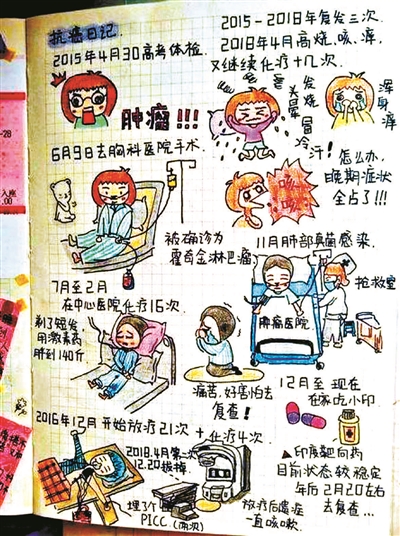 抗癌日记
2015年4月30高考体检.
肿瘤!!!
6月9日去胸科医院手术.
被确诊为
霍奇金淋巴瘤
7月至2月
在中心医院化疗16次
剃了短发
用激素药
胖到140斤
痛苦,好害怕去
复查!
2016年12月开始放疗21次+化疗4次
2018.4月第二次
12.20拔掉.
埋3个
PICC (两次)
放疗后遗症
一直咳嗽.
2015-2018年复发三次.
2018年4月高烧、咳、痒,
又继续化疗十几次.
发烧
头晕
冒冷汗!
浑身痒
怎么办,
晚期症状
全占了!!!
咳咳
11月肺部真菌感染.
抢救室
肿瘤医院
12月至现在
在家吃小印
▲印度靶向药
目前状态较稳定
年后2月20左右
去复查...
-28
入座
.00